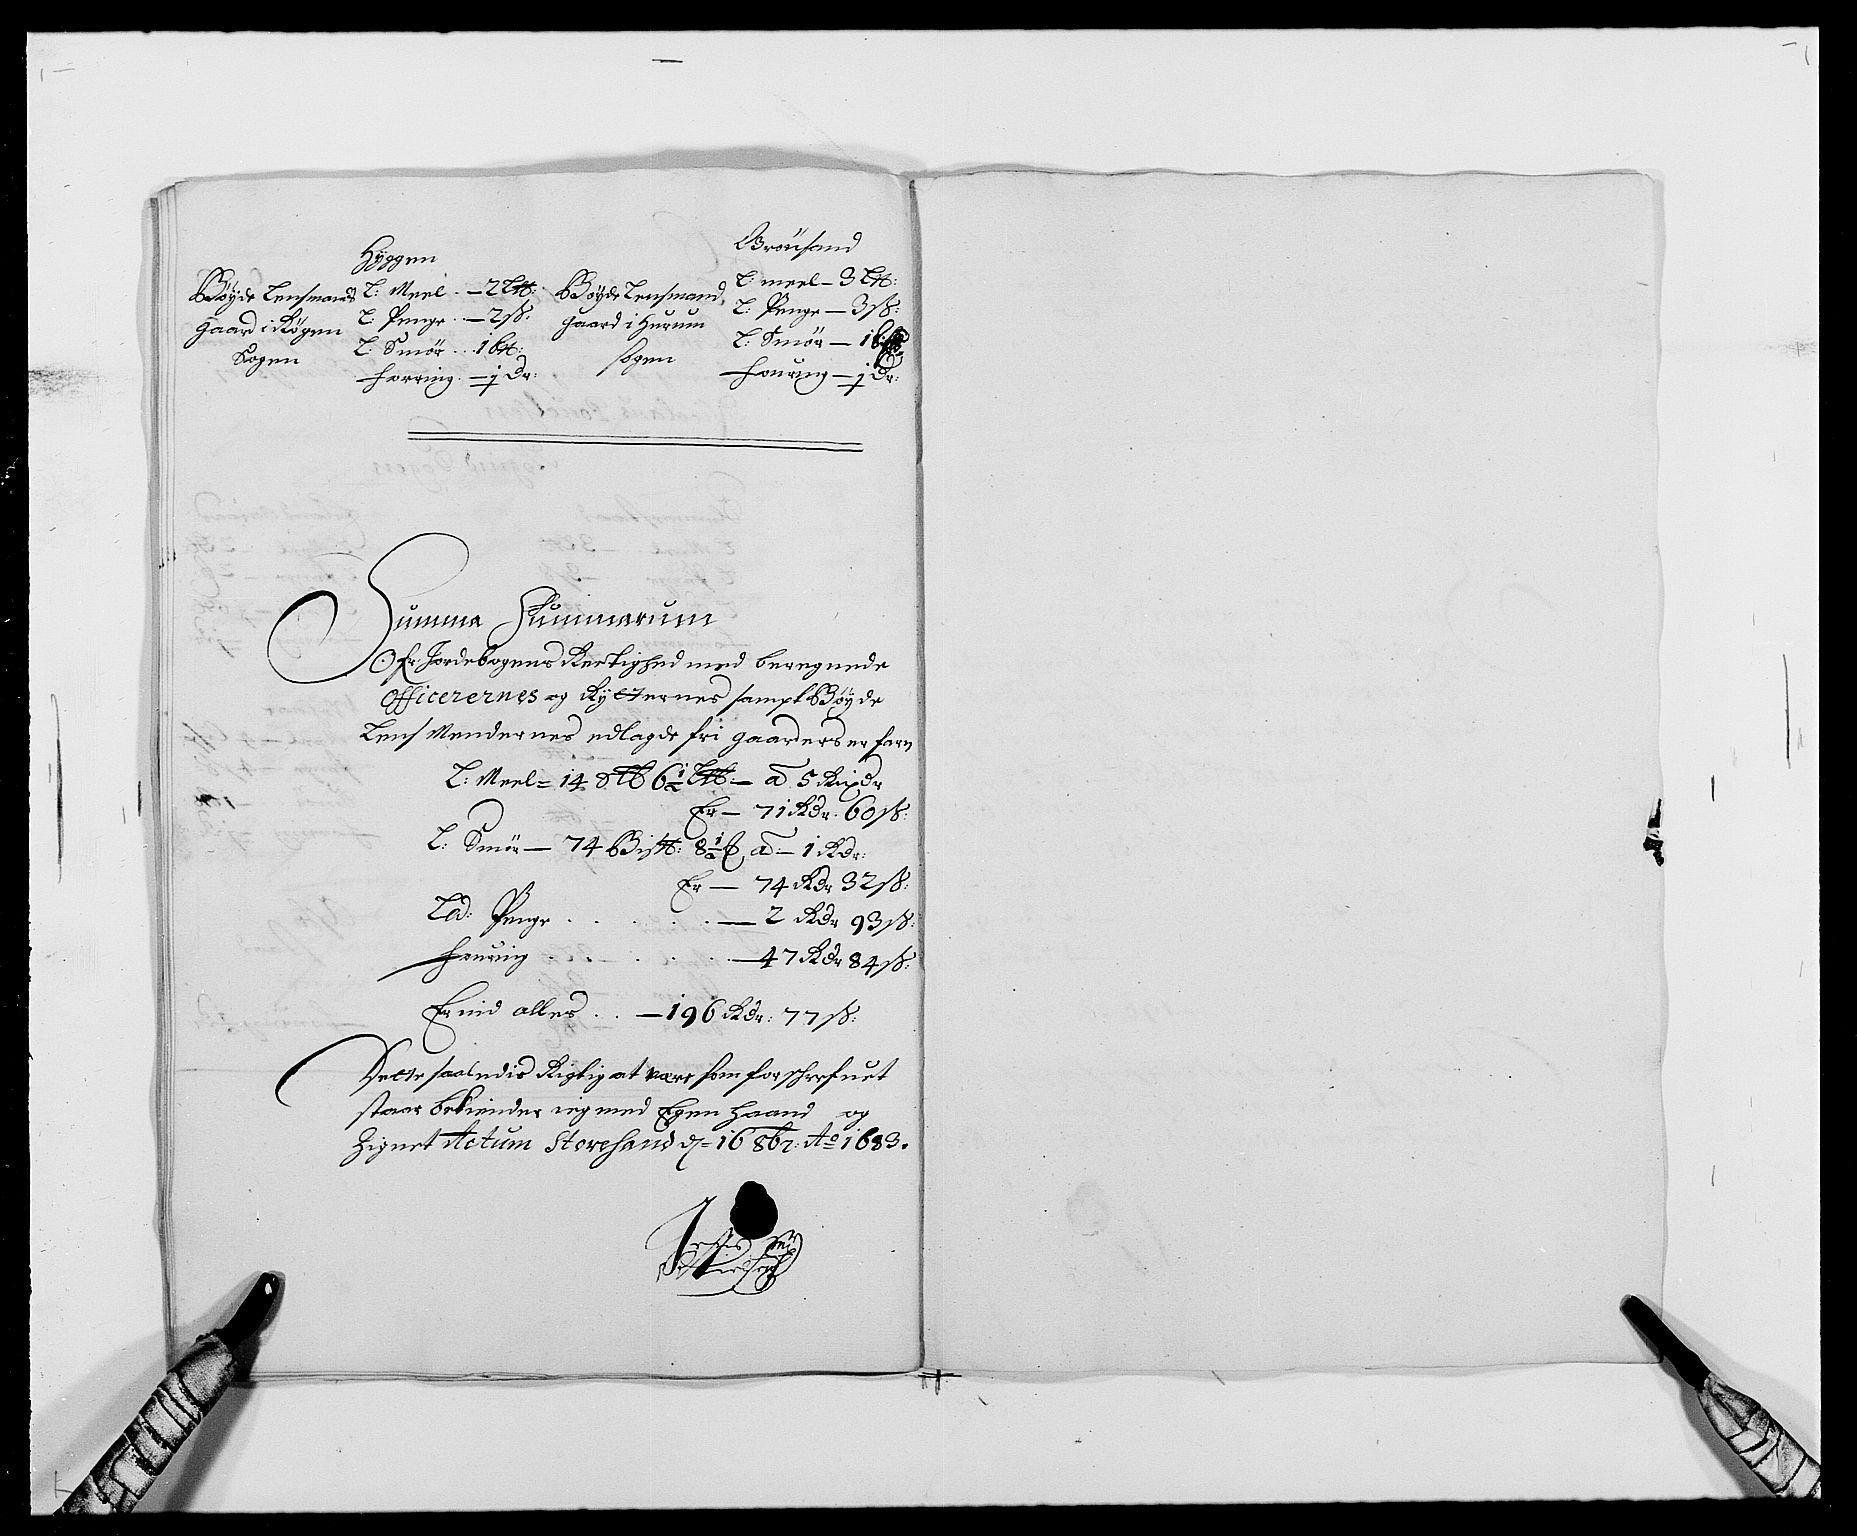 Hyggen
Böyde Lensmands
gaard i Rögen
Sogen
L: Meel - 2 L℔:
L: Penge - 2 ß:
L: Smör - 1 b℔:
Forring - 1 Dr:
Grönsand
Böyde Lensmand,
gaard i Hurum
sogen
L: meel - 3 L℔:
L: Penge - 3 ß:
L: Smör - 1 b
Fouring - 1 Dr:
Summa Summarum
Ofr Jordebogens Rertighed med beregnede
Officerernes og Rytternes sampt Böyde
Lens Mendernes edlagde fri gaarders er
L: Meel = 14 6½ L℔ - a 5 Rixdr
Er - 71 Rdr. 60 ß:
L: Smör - 74 Bis℔: 8½ a - 1 Rdr:
Er - 74 Rdr 32 ß:
Led: Penge . . . . - 2 Rdr 93 ß:
Fouring . . . . - 47 Rdr 84 ß:
Er ind alles . . - 196 Rdr: 77 ß:
Dette saaledis Rigtig at være som forschrefuet
staar bekiender ieg med Egen haand og
Zignet Actum Storesand d= 16 8br: Ao 1683.